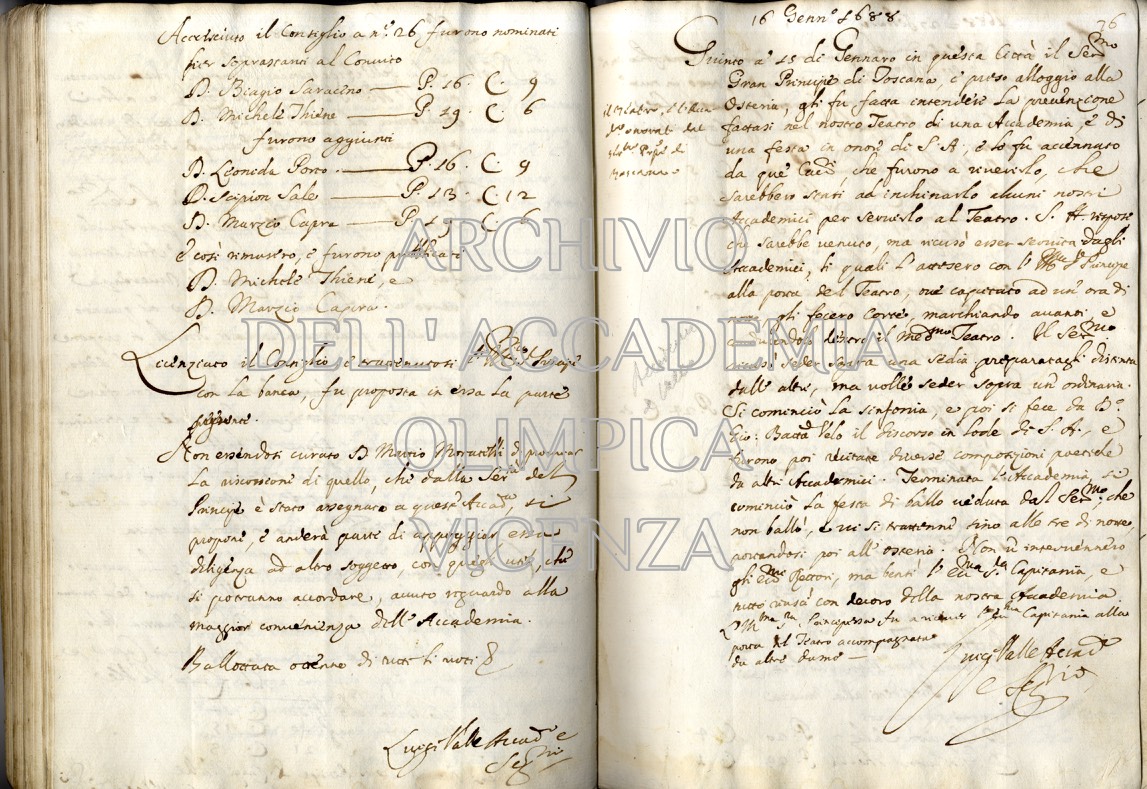 Accresciuto il Consiglio a nº. 26 furono nominati
per soprastanti al Convito
D. Biagio Saraceno — P. 16. C. 9
D. Michele Thiene — P. 19. C. 6
furono aggiunti
D. Leonida Porto — P. 16. C. 9
D. Scipion Sale — P. 13. C. 12
D. Marzio Capra — P. 19. C. 6
e così rimasero, e furono pubblicati
D. Michele Thiene, e
D. Marzio Capra.
Licenziato il Consiglio e Principe
con la banca, fu proposta in essa la parte
seguente.
Non essendosi curato D. Mario di procurar
la riscossione di quello, che dalla Ser. del
Principe è stato assegnato a quest' Accad.a, si
propone, e anderà parte di appoggiar essa
diligenza ad altro soggetto, con quegl' utili, che
si potranno accordare, avuto riguardo alla
maggior convenienza dell' Accademia.
Ballottata ottenne di tutti li voti 8
Luigi Valle Accad.o e
Seg.rio
16 Genn.o 1688 76
Giunto a' 15 di Gennaro in questa Città il Ser.mo
Gran Principe di Toscana, e preso alloggio alla
Osteria, gli fu fatta intendere la prevenzione
fattasi nel nostro Teatro di una Accademia, e di
una festa in onore di S. A., e lo fu accennato
da que' che furono a riverirlo, che
sarebbero stati ad inchinarlo alcuni nostri
Accademici per servirlo al Teatro. S. A. rispose
che sarebbe venuto, ma ricusò esser servita dagli
Accademici, li quali l'attesero con l' Principe
alla porta del Teatro, ove capitato ad un' ora di
notte, gli fecero corte, marchiando avanti, e
conducendolo dentro il med.mo Teatro. Il Ser.mo
ricusò seder sopra una sedia preparatagli distinta
dall' altre, ma volle seder sopra un' ordinaria.
Si cominciò la sinfonia, e poi si fece da D.
Gio: Batta Velo il discorso in lode di S. A., e
furono poi recitate diverse composizioni poetiche
da altri Accademici. Terminata l'Accademia, si
cominciò la festa di ballo veduta dal Ser.mo, che
non ballò, e vi si trattenne sino alle tre di notte,
portandosi poi all' osteria. Non v' intervennero
gli Ecc.mi Rettori, ma bensì l' Ecc.ma S.ra Capitania, e
tutto riuscì con decoro della nostra Accademia.
Principessa fu a ricever Capitania alla
porta del Teatro accompagnata
da altre dame —
Luigi Valle Accad.o
e Seg.rio
ARCHIVIO
DELL' ACCADEMIA
OLIMPICA
VICENZA